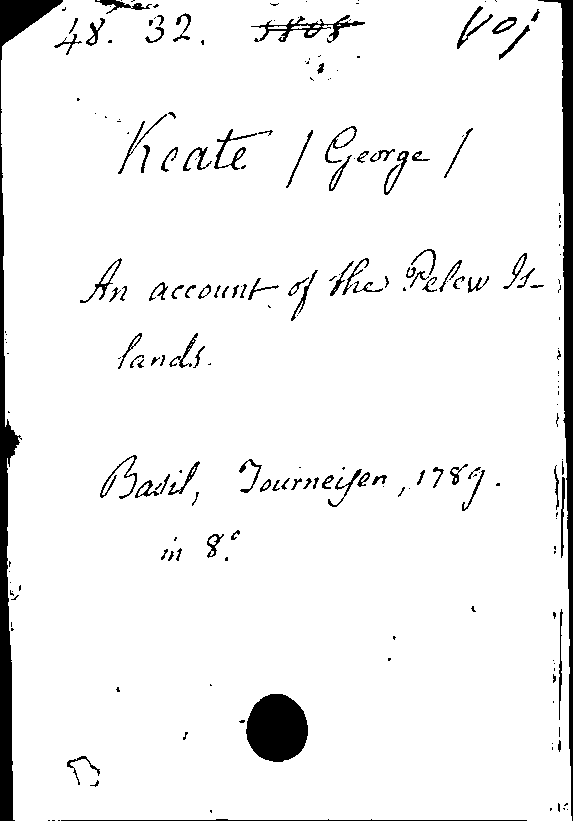 48. 32. 5808 Voy
Keate / George /
An account of the Pelew Is-
lands.
Basil, Tourneisen, 1789.
in 8.°
B